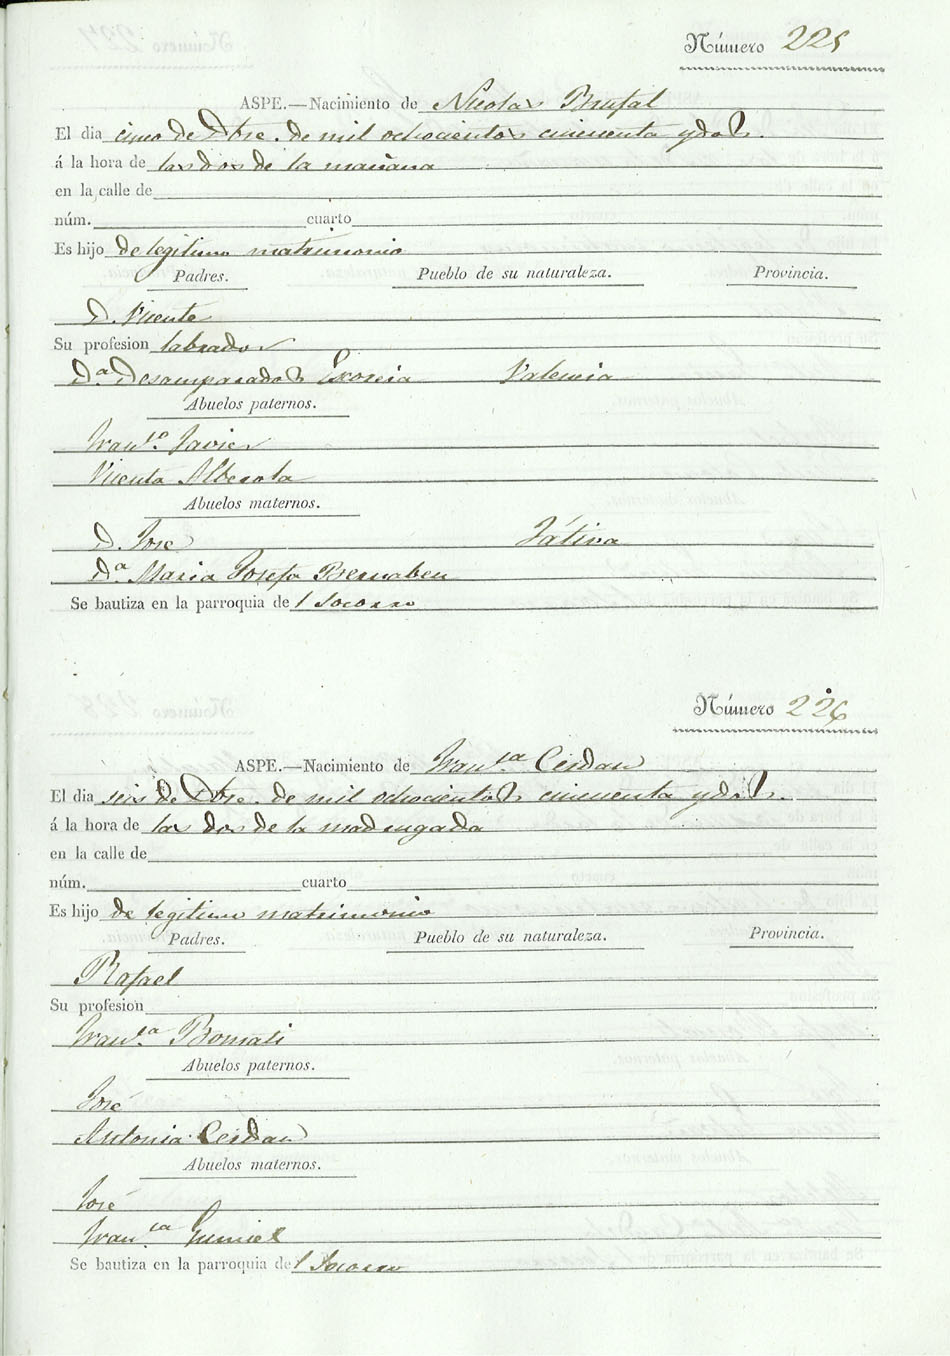 Número 225
ASPE.—Nacimiento de Nicolas Brufal
El dia cinco de Dbre. de mil ochocientos cincuenta y dos.
á la hora de las dos de la mañana
en la calle de
núm. cuarto
Es hijo de legitimo matrimonio
Padres. Pueblo de su naturaleza. Provincia.
D. Vicente
Su profesion labrador
Dª Desamparados Valencia
Abuelos paternos.
Franco. Javier
Vicenta Alberola
Abuelos maternos.
D. José Játiva
Dª. Maria Josefa Bernabeu
Se bautiza en la parroquia del Socorro
Número 226
ASPE.—Nacimiento de Franca. Cerdan
El dia seis de Dbre. de mil ochocientos cincuenta y dos.
á la hora de las dos de la madrugada
en la calle de
núm. cuarto
Es hijo de legitimo matrimonio
Padres. Pueblo de su naturaleza. Provincia.
Rafael
Su profesion
Franca. Bonmati
Abuelos paternos.
José
Antonia Cerdan
Abuelos maternos.
José
Franca. Gumiel
Se bautiza en la parroquia del Socorro